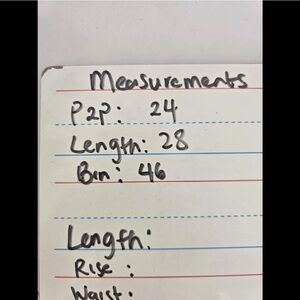 Measurements
P2P: 24
Length: 28
Bin: 46
Length:
Rise:
Waist: